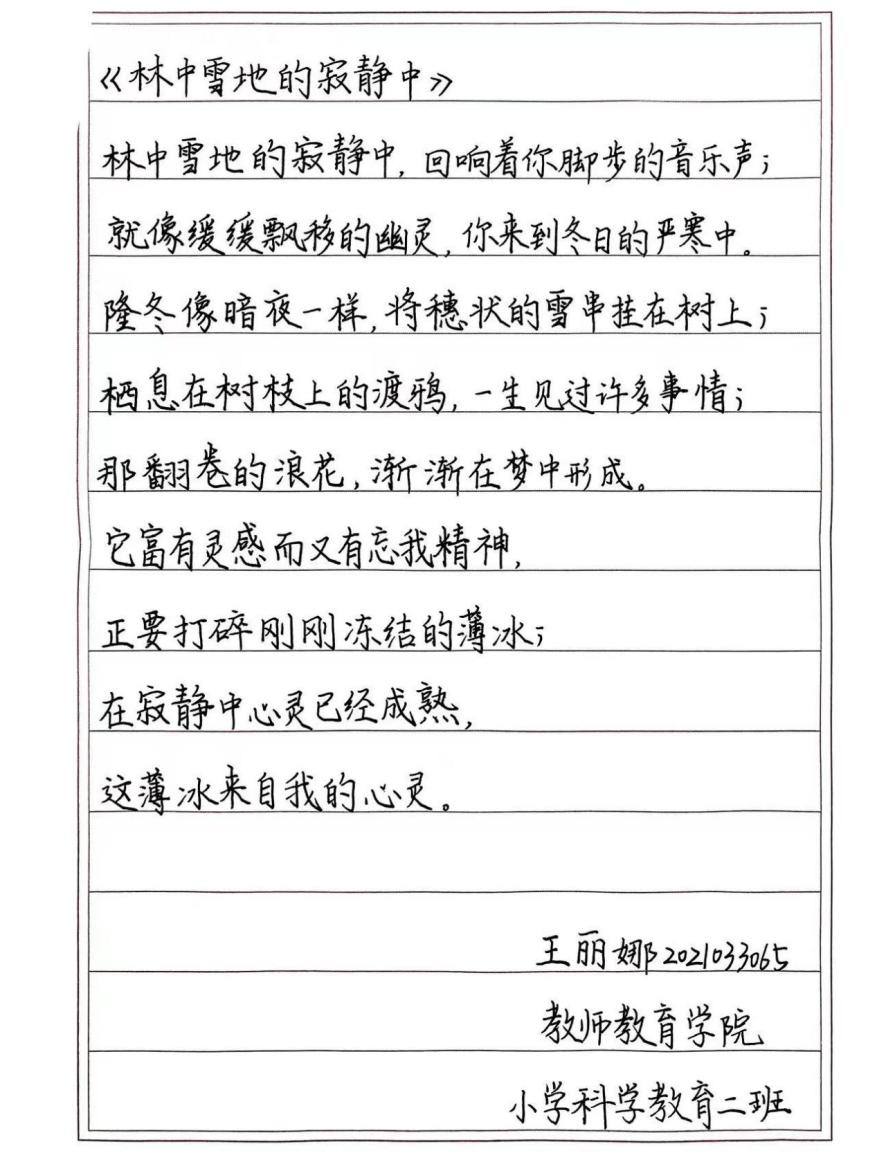 《林中雪地的寂静中》
林中雪地的寂静中,回响着你脚步的音乐声;
就像缓缓飘移的幽灵,你来到冬日的严寒中。
隆冬像暗夜一样,将穗状的雪串挂在树上;
栖息在树枝上的渡鸦,一生见过许多事情;
那翻卷的浪花,渐渐在梦中形成。
它富有灵感而又有忘我精神,
正要打碎刚刚冻结的薄冰;
在寂静中心灵已经成熟,
这薄冰来自我的心灵。
王丽娜2021033065
教师教育学院
小学科学教育二班